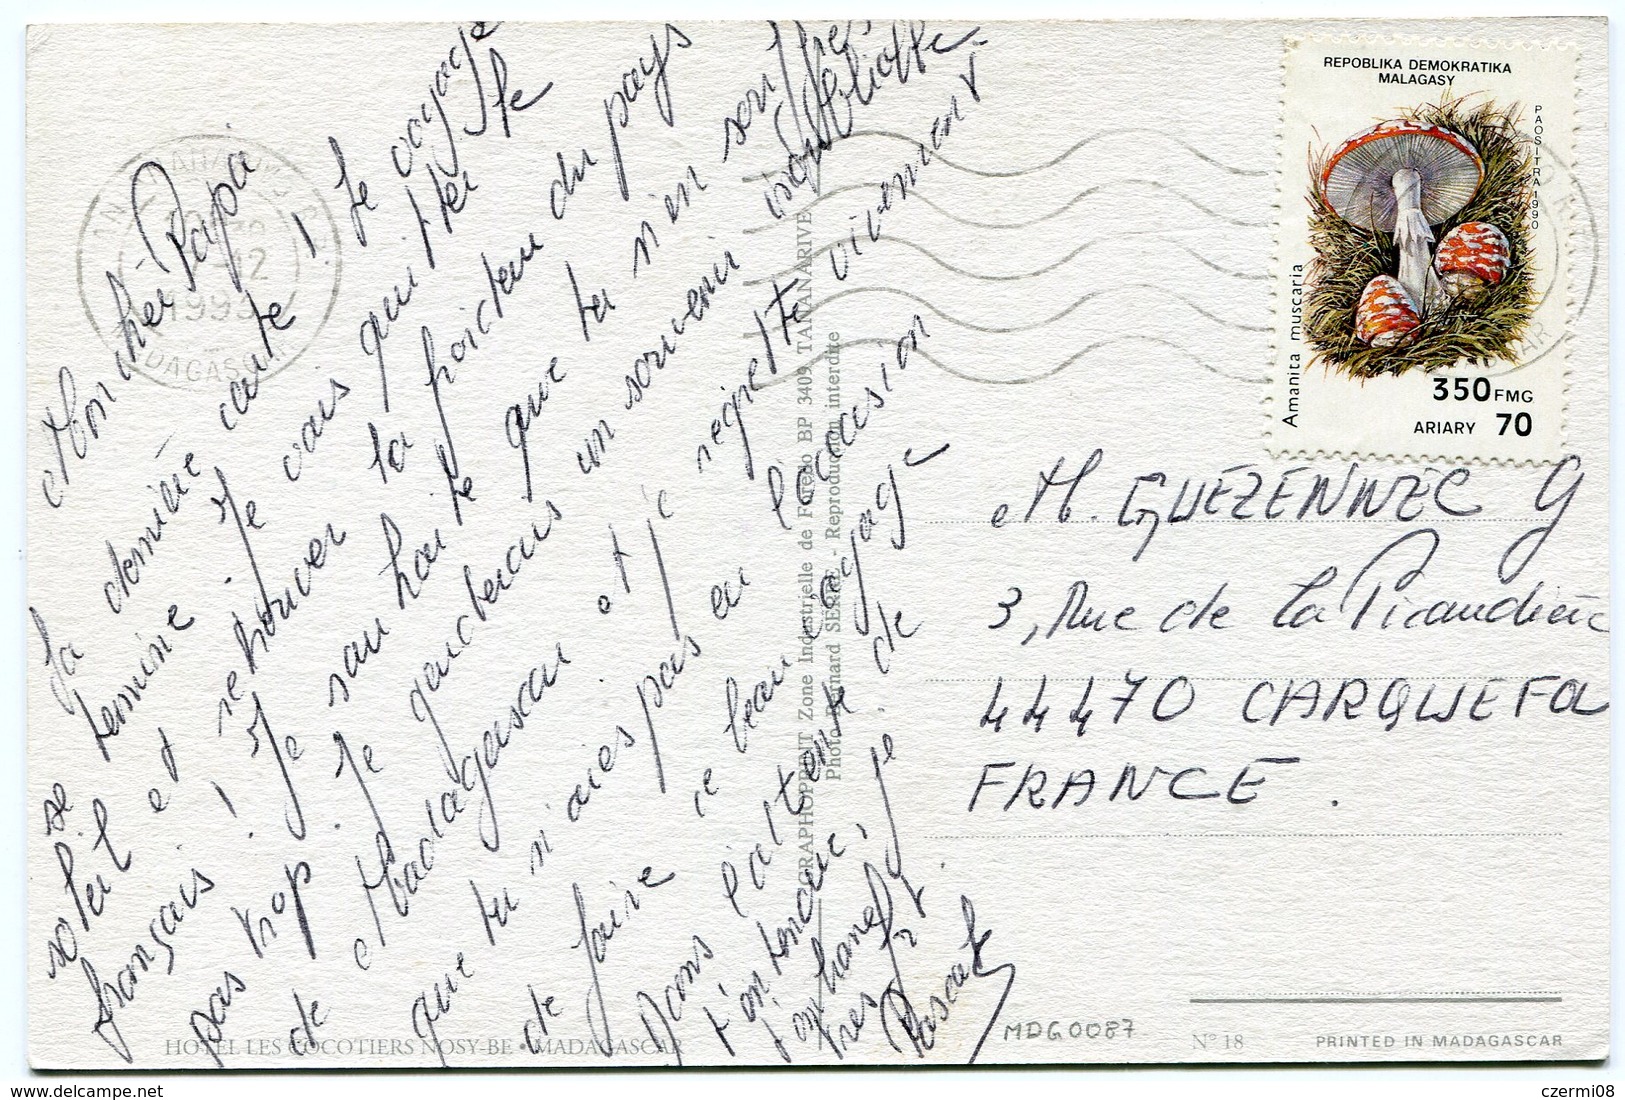 Mon cher Papa
La dernière carte ! Le voyage
se termine. Je vais quitter le
soleil et retrouver la froideur du pays
français ! Je souhaite que tu n'en souffres
pas trop. Je garderais un souvenir inoubliable
de Madagascar et je regrette vivement
que tu n'aies pas eu l'occasion
de faire ce beau voyage
Dans l'attente de
t'entendre, je
t'embrasse
très fort
Pascale
HOTEL LES COCOTIERS NOSY-BE • MADAGASCAR
GRAPHOPRINT Zone Industrielle de Forello BP 3409 TANANARIVE
Photo Bernard SERRE - Reproduction interdite
1993
MADAGASCAR
REPOBLIKA DEMOKRATIKA
MALAGASY
PAOSITRA 1990
Amanita muscaria
350 FMG
ARIARY 70
M. GUEZENNEC G
3, Rue de la Picaudière
44470 CARQUEFOU
FRANCE.
MDG0087
N° 18
PRINTED IN MADAGASCAR
czermi08